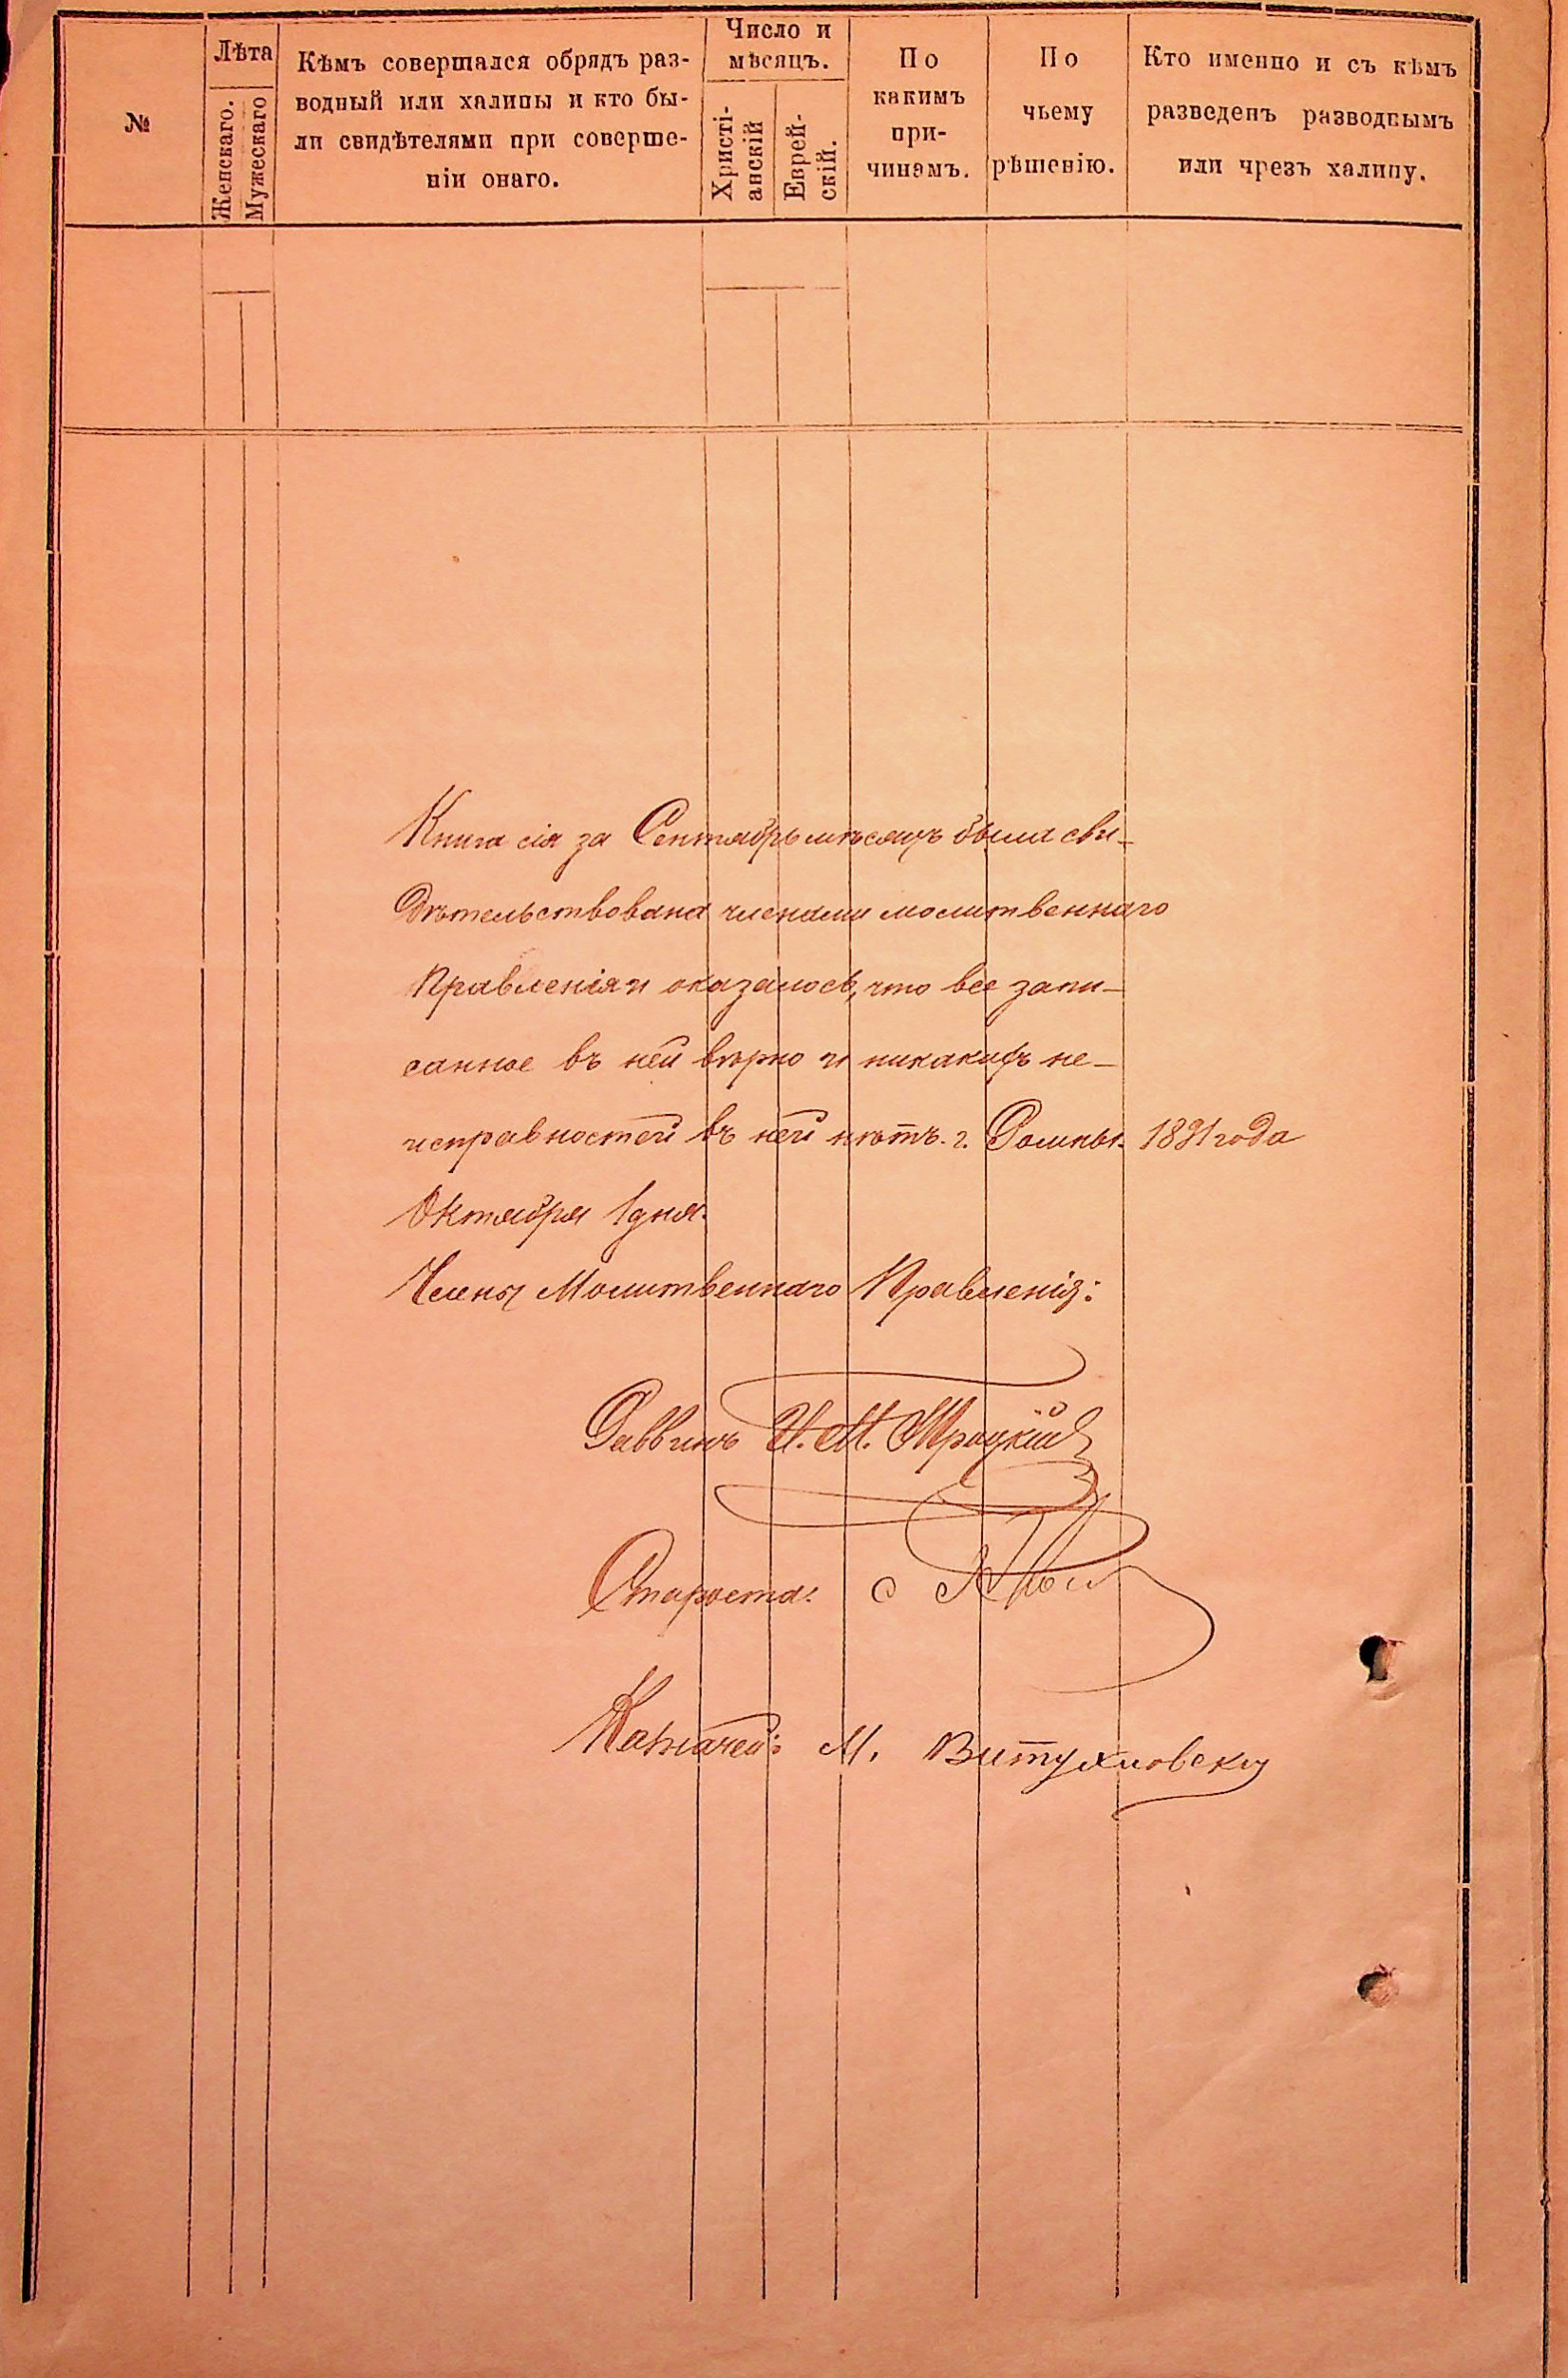 №
Лѣта
Женскаго.
Мужескаго
Кѣмъ совершался обрядъ раз-
водный или халицы и кто бы-
ли свидѣтелями при соверше-
ніи онаго.
Число и
мѣсяцъ.
Христі-
анскій
Еврей-
скій.
По
какимъ
при-
чинамъ.
По
чьему
рѣшенію.
Кто именно и съ кѣмъ
разведенъ разводнымъ
или чрезъ халицу.
Книга сія за Сентябрь мѣсяцъ была сви-
дѣтельствована членами молитвеннаго
Правленія и оказалось, что все запи-
санное въ ней вѣрно и никакихъ не-
исправностей въ ней нѣтъ. г. Ромны. 1891 года
Октября 1 дня.
Члены Молитвеннаго Правленія:
Раввинъ И. М. Троцкій
Староста:
Казначей: М. Витухновскій